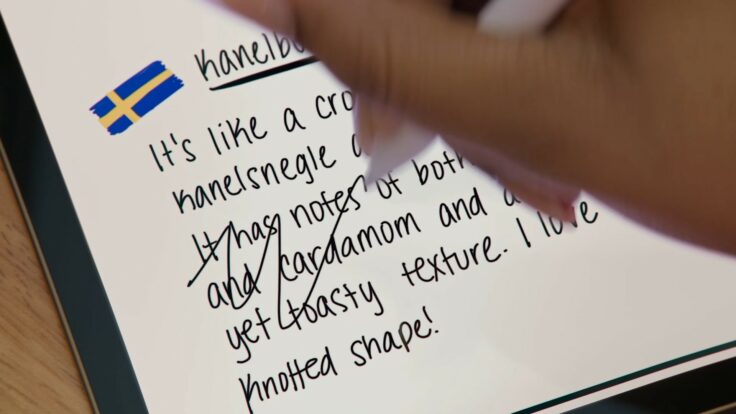 It's like a
kanelsnegle
It has notes of both
and cardamom and
yet toasty texture. I love
knotted shape!